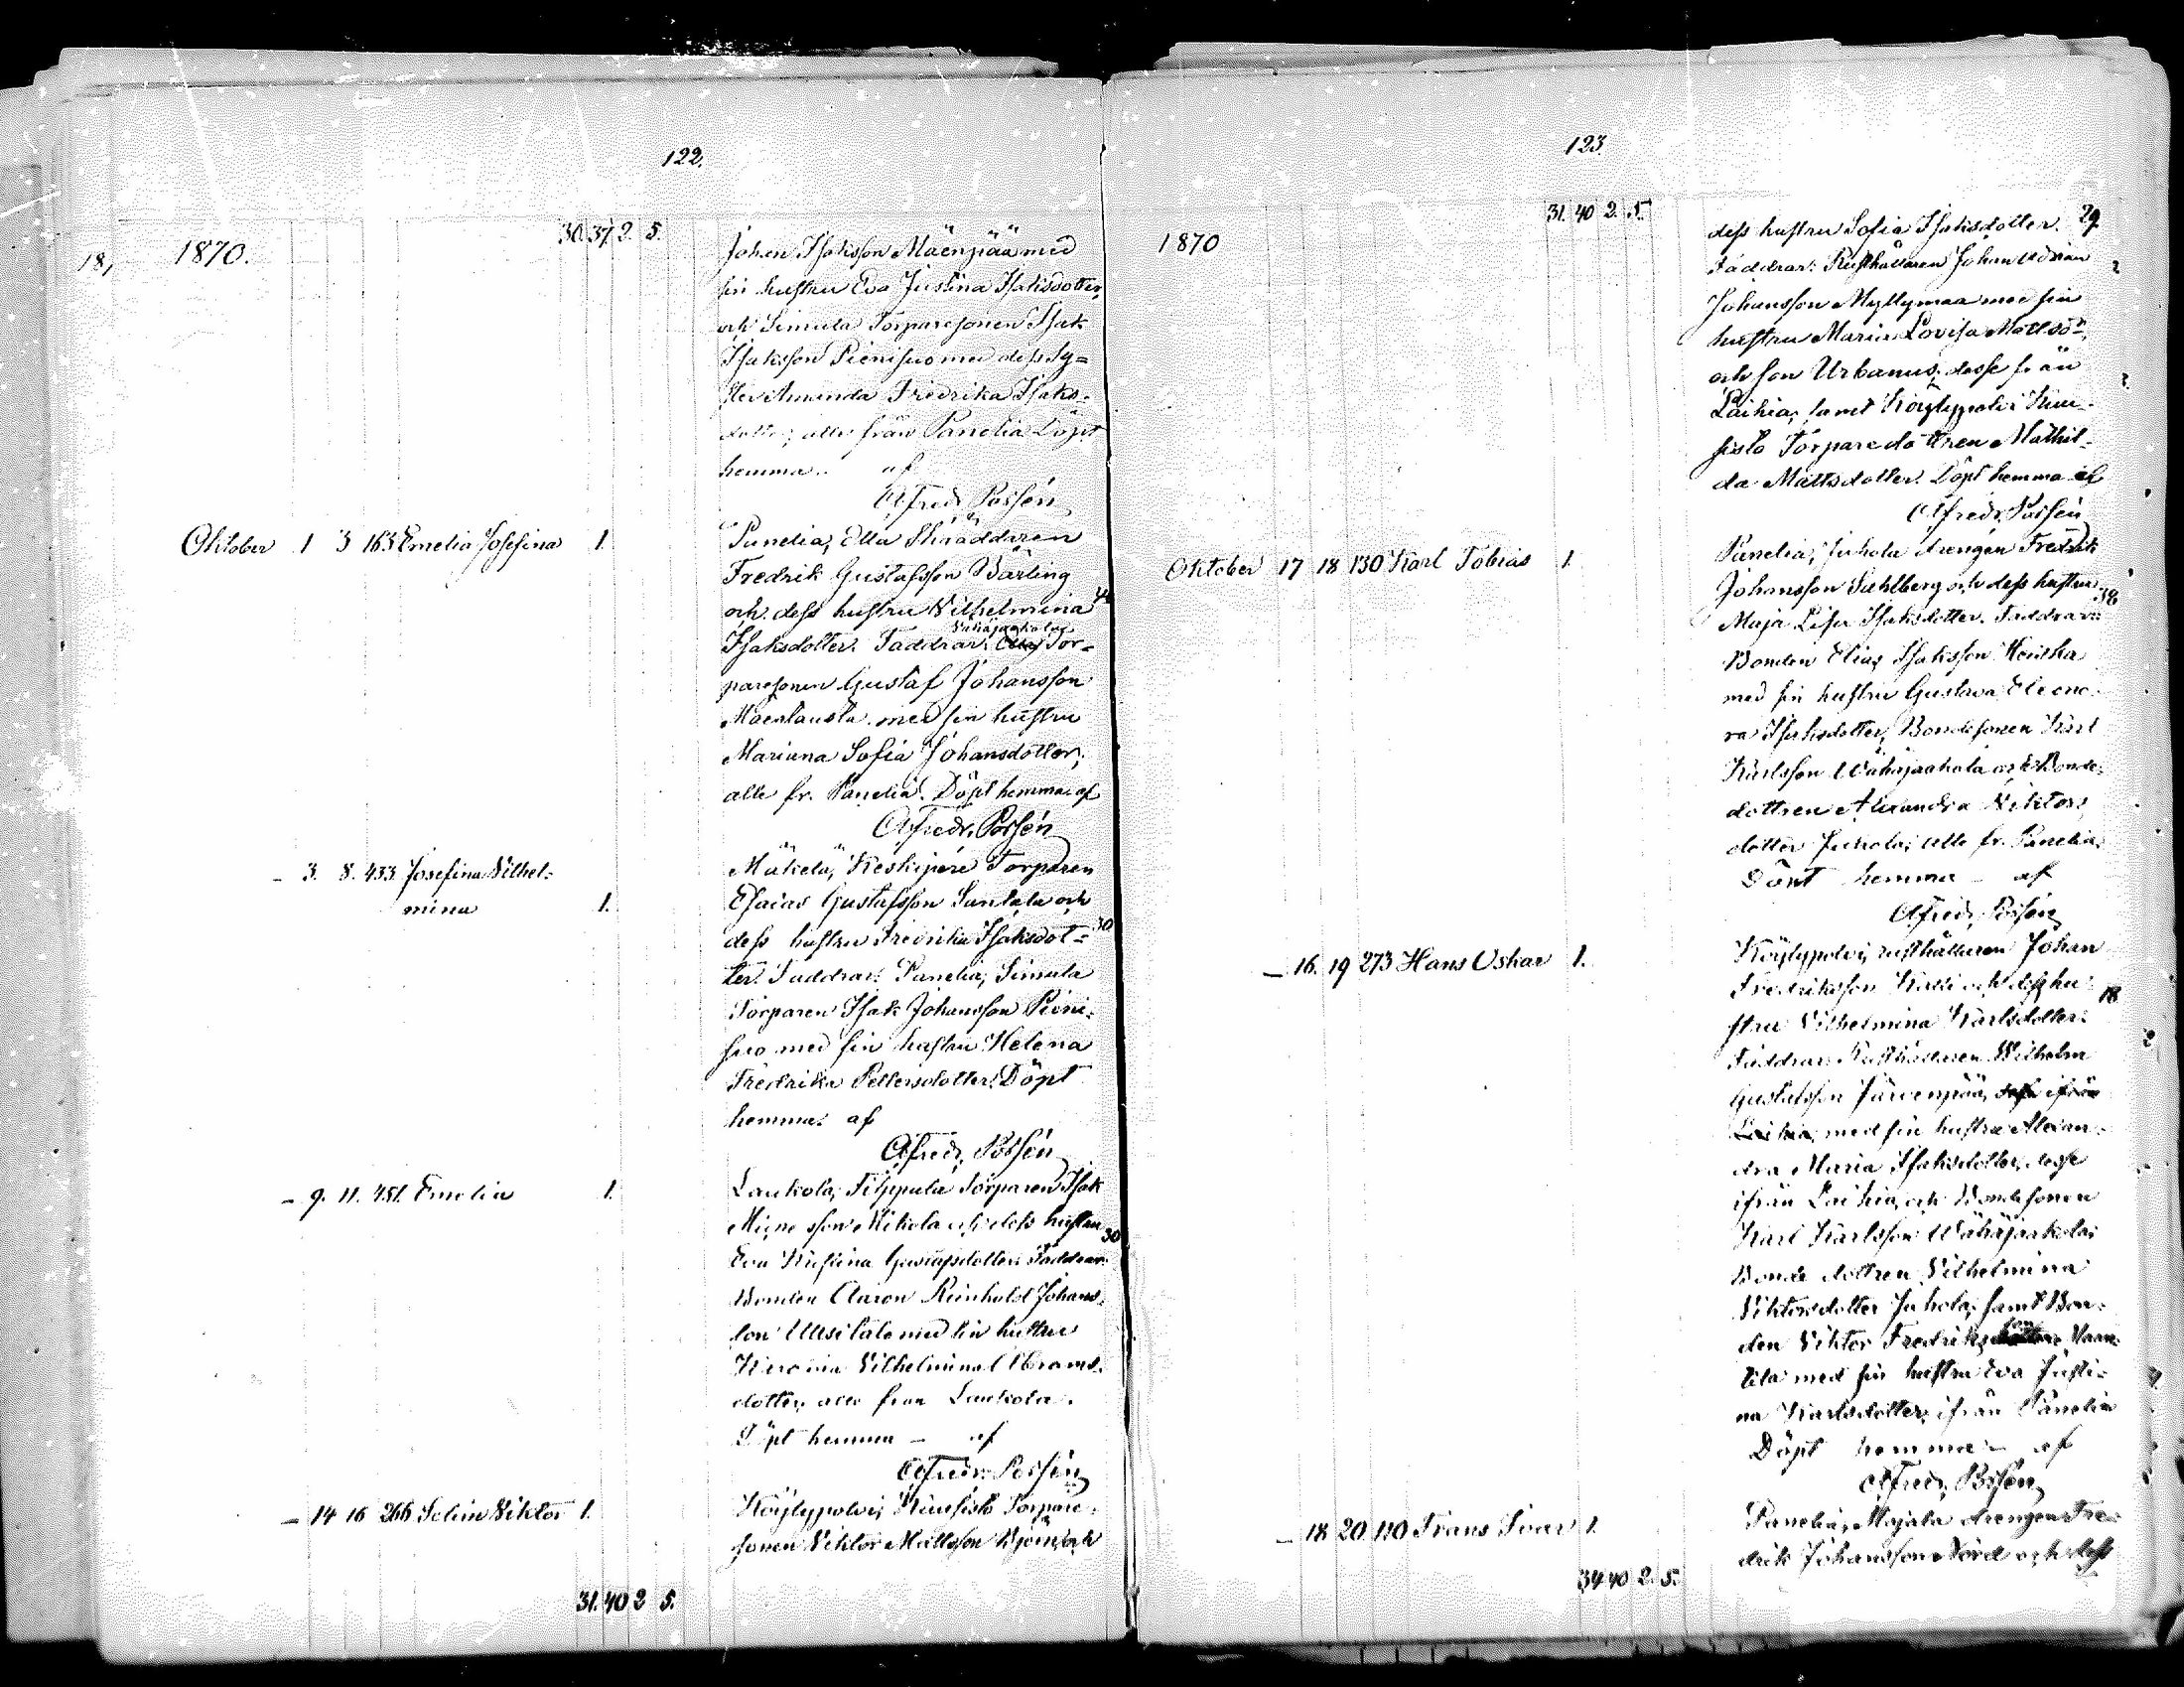 122.
30. 37 2. 5.
18,
1870.
Johan Isaksson Mäenpää med
sin hustru Eva Justina Isaksdotter,
och Simula Torparesonen Isak
Isaksson Pienisuo med dess Sy=
ster Amanda Fredrika Isaks-
dotter; alla från Panelia Döpt
hemma.. af
Alfred. Possén
Oktober 1 3 163 Emelia Josefina 1.
Panelia, Olla Skräddaren
Fredrik Gustafsson Bärling
och dess hustru Vilhelmina
Isaksdotter. Faddrar: Vähäjaakola Tor=
paresonen Gustaf Johansson
Mäentausta med sin hustru
Mariana Sofia Johansdotter;
alla fr. Panelia. Döpt hemma af
Alfredr. Possén
- 3. 8. 433. Josefina Vilhel=
mina 1.
Mäkelä, Keskipere Torparen
Esaias Gustafsson Santala och
dess hustru Fredrika Isaksdot= 30
ter. Faddrar: Panelia, Simula
Torparen Isak Johansson Pieni=
suo med sin hustru Helena
Fredrika Pettersdotter. Döpt
hemma: af
Alfredr. Possén
- 9. 11. 451. Emelia 1.
Laukola, Filppula Torparen Isak
sson Mikola och dess hustru 30
Eva Kristina Gustafsdotter. Faddrar:
Bonden Aaron Reinhold Johans=
son Uusitalo med sin hustru
Vilhelmina Abrams-
dotter, alla från Laukola.
Döpt hemma - af
Alfredr. Possén
- 14 16 266 Selim Viktor 1.
Köylypolvi, Kuusisto Torpare-
sonen Viktor Mattsson Björn, och
31. 40 2 5.
123.
31. 40 2. 5.
1870
dess hustru Sofia Isaksdotter. 29
Faddrar: Rusthållaren Johan Adrian
Johansson Myllymaa med sin
hustru Maria Lovisa Mattsdr
och son Urbanus, desse från
Laihia, samt Köylypolvi Kuu-
sisto Torparedottren Mathil-
da Mattsdotter. Döpt hemma af
Alfredr. Possén
Oktober 17 18 130 Karl Tobias 1.
Panelia, Juhola drengen Fredrik
Johansson Sahlberg och dess hustru 38
Maja Lisa Isaksdotter. Faddrar:
Bonden Elias Isaksson Heiska
med sin hustru Gustava Eleono-
ra Isaksdotter, Bondesonen Karl
Karlsson Wähäjaakola och Bonde-
dottren Alexandra Viktors
dotter Juhola; alla fr. Panelia.
Döpt hemma - af
Alfredr. Possén
- 16. 19 273 Hans Oskar 1.
Köylypolvi, rusthållaren Johan
Fredriksson och dess hu- 18
stru Vilhelmina Karlsdotter.
Faddrar: Rusthållaren Wilhelm
Gustafsson Järvenpää, ifrån
Laihia, med sin hustru Alexan-
dra Maria Isaksdotter, desse
ifrån Laihia, och Bondesonen
Karl Karlsson Wähäjaakola,
Bonde dottren Vilhelmina
Viktorsdotter Juhola; samt Bon-
den Viktor Fredriksson Vaan-
tila med sin hustru Eva Justi-
na Karlsdotter, ifrån Panelia
Döpt hemma - af
Alfredr. Possén
- 18 20 110 Frans Ivar 1.
Panelia, Majala drengen Fre-
drik Johansson Nord och dess
34 40 2. 5.